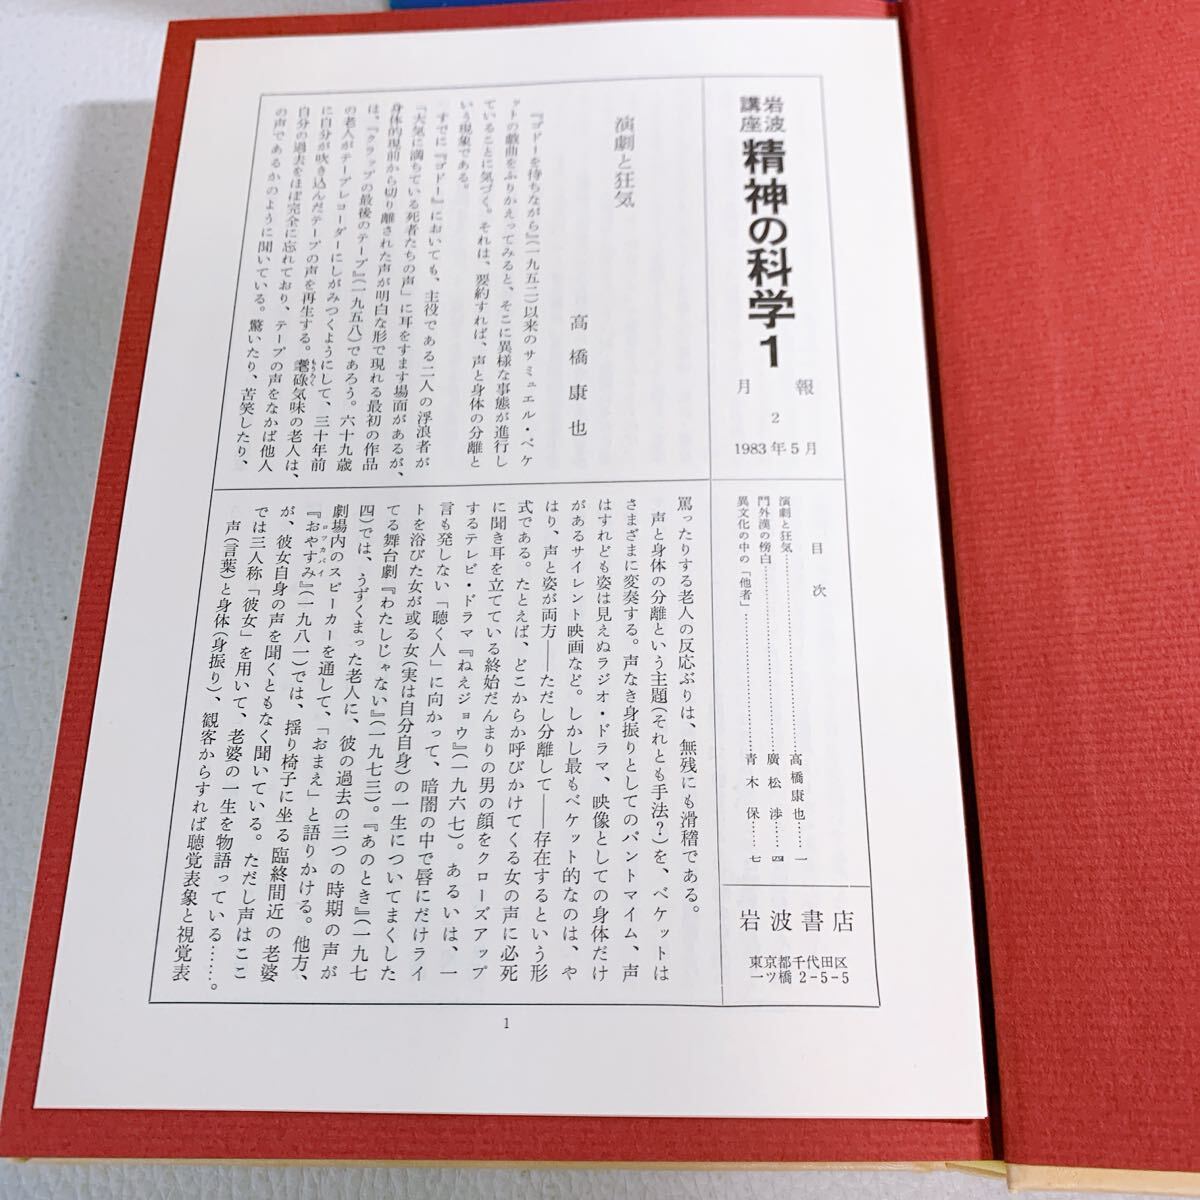 岩波講座 精神の科学 1
月報
2
1983年5月
目次
演劇と狂気……………高橋康也……一
門外漢の傍白……………廣松渉……四
異文化の中の「他者」……………青木保……七
岩波書店
東京都千代田区
一ツ橋 2-5-5
演劇と狂気
高橋康也
『ゴドーを待ちながら』(一九五二)以来のサミュエル・ベケ
ットの戯曲をふりかえってみると、そこに異様な事態が進行し
ていることに気づく。それは、要約すれば、声と身体の分離と
いう現象である。
すでに『ゴドー』においても、主役である二人の浮浪者が
「大気に満ちている死者たちの声」に耳をすます場面があるが、
身体的現前から切り離された声が明白な形で現れる最初の作品
は、『クラップの最後のテープ』(一九五八)であろう。六十九歳
の老人がテープレコーダーにしがみつくようにして、三十年前
に自分が吹き込んだテープの声を再生する。耄碌気味の老人は、
自分の過去をほぼ完全に忘れており、テープの声をなかば他人
の声であるかのように聞いている。驚いたり、苦笑したり、
罵ったりする老人の反応ぶりは、無残にも滑稽である。
声と身体の分離という主題(それとも手法?)を、ベケットは
さまざまに変奏する。声なき身振りとしてのパントマイム、声
はすれども姿は見えぬラジオ・ドラマ、映像としての身体だけ
があるサイレント映画など。しかし最もベケット的なのは、や
はり、声と姿が両方――ただし分離して――存在するという形
式である。たとえば、どこからか呼びかけてくる女の声に必死
に聞き耳を立てている終始だんまりの男の顔をクローズアップ
するテレビ・ドラマ『ねえジョウ』(一九六七)。あるいは、一
言も発しない「聴く人」に向かって、暗闇の中で唇にだけライ
トを浴びた女が或る女(実は自分自身)の一生についてまくした
てる舞台劇『わたしじゃない』(一九七三)。『あのとき』(一九七
四)では、うずくまった老人に、彼の過去の三つの時期の声が
劇場内のスピーカーを通して、「おまえ」と語りかける。他方、
『おやすみ』(一九八一)では、揺り椅子に坐る臨終間近の老婆
が、彼女自身の声を聞くともなく聞いている。ただし声はここ
では三人称「彼女」を用いて、老婆の一生を物語っている……。
声(言葉)と身体(身振り)、観客からすれば聴覚表象と視覚表
1